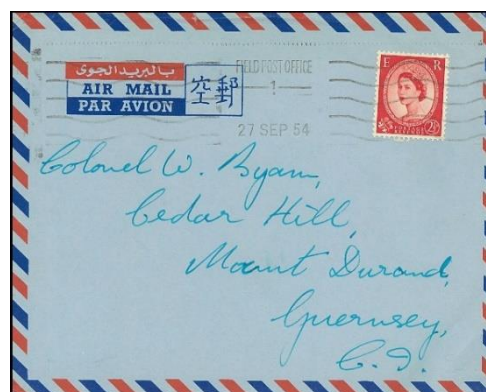 بالبريد الجوى
AIR MAIL
PAR AVION
空郵
FIELD POST OFFICE
1
27 SEP 54
E R
2½
Colonel W. Byam,
Cedar Hill,
Mount Durand,
Guernsey,
C.I.